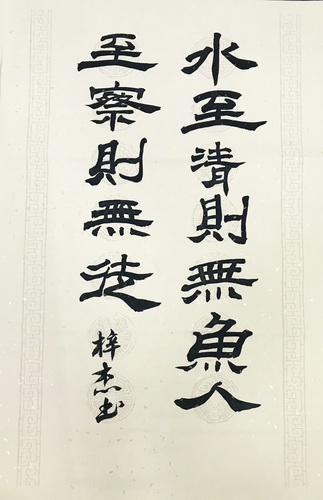 水至清則無魚人
至察則無徒
梓杰书